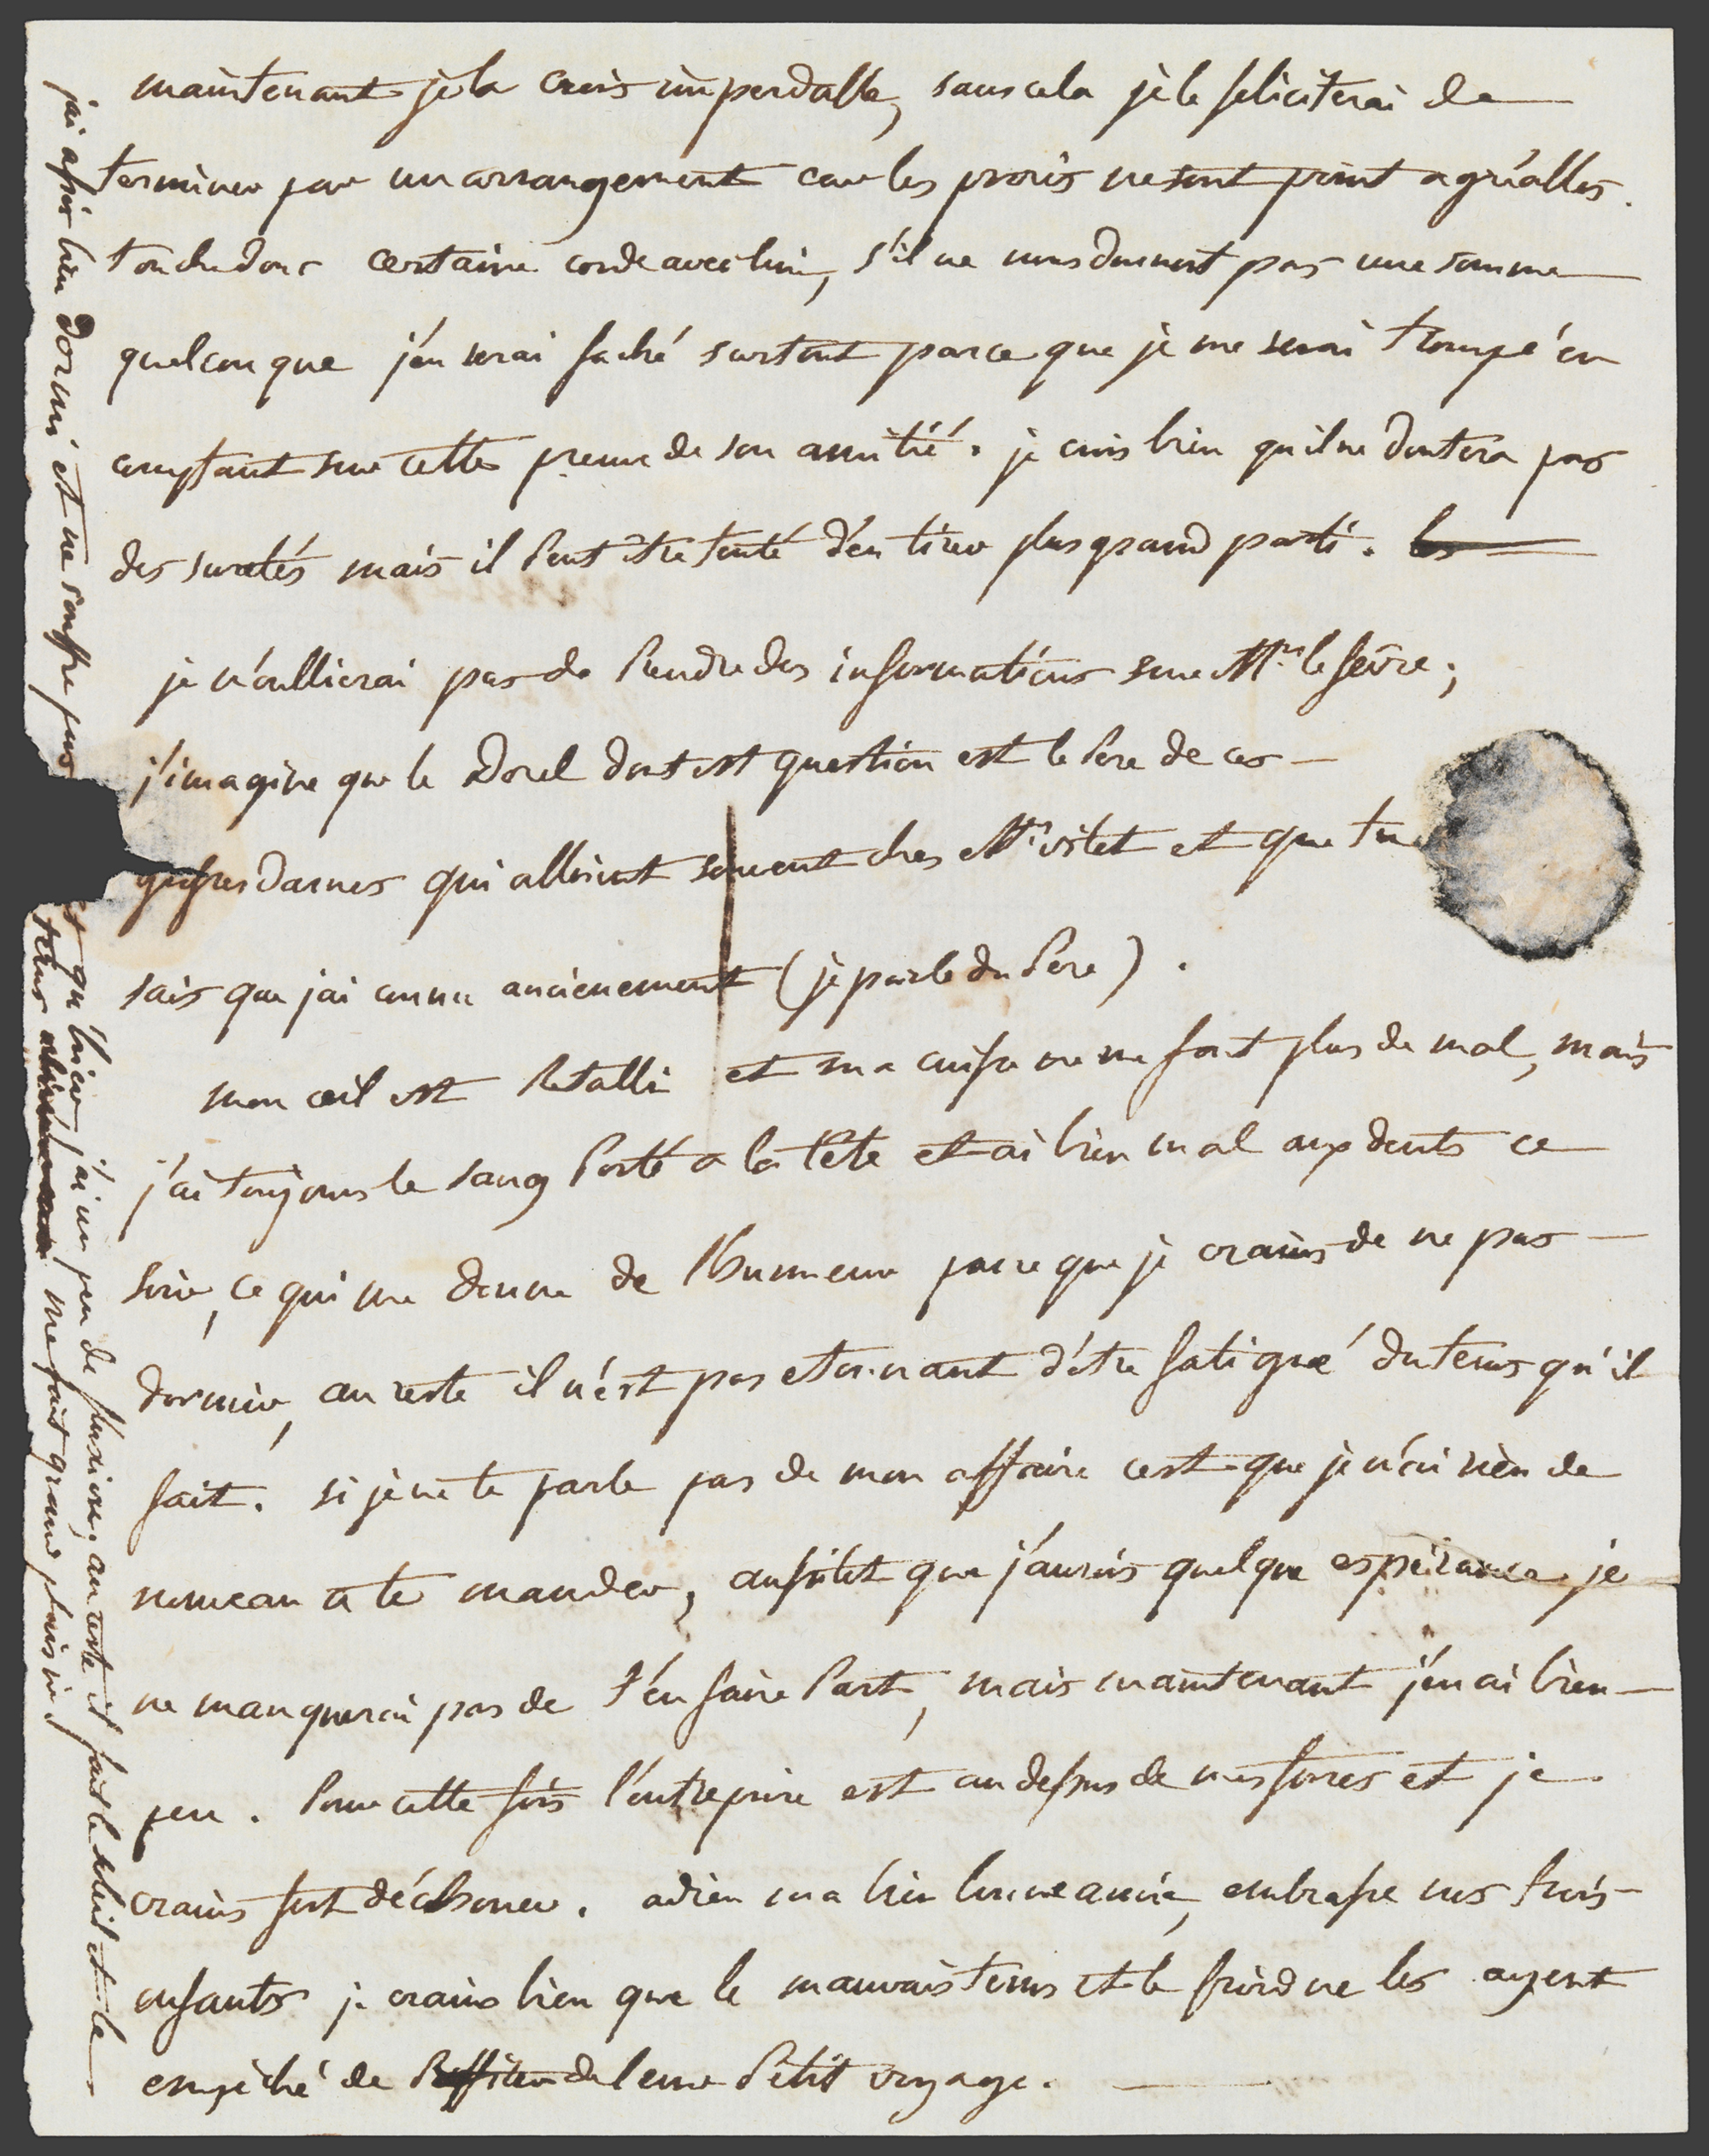 maintenant je la crois imperdable, sans cela je le feliciterai de
terminer par un arrangement car les procès ne sont point agréables.
touche donc certaine corde avec lui, s'il ne nous donnoit pas une somme
quelconque j'en serai faché surtout parce que je me serai trompé en
comptant sur cette preuve de son amitié. je crois bien qu'il ne doutera pas
des suretés mais il peut être tenté d'en tirer plus grand parti. les
je n'oublierai pas de prendre des informations sur Mr le feivre;
j'imagine que le Dorel dont est question est le pere de ces
grosses dames qui alloient souvent ches Mr vitet et que tu
sais que j'ai connu anciennement (je parle du pere).
mon œil est retabli et ma cuisse ne me fait plus de mal, mais
j'ai toujours le sang porté a la tête et ai bien mal aux dents ce
soir, ce qui me donne de l'humeur parce que je crains de ne pas
dormir, au reste il n'est pas etonnant d'être fatigué du tems qu'il
fait. si je ne te parle pas de mon affaire c'est que je n'ai rien de
nouveau a te mander, aussitot que j'aurois quelque espérance je
ne manquerai pas de t'en faire part, mais maintenant j'en ai bien
peu. pour cette fois l'entreprise est au dessus de mes forces et je
crains fort d'échouer. adieu ma bien bonne amie, embrasse nos trois
enfants je crains bien que le mauvais tems et le froid ne les ayent
empêché de profiter de leur petit voyage.
j'ai assez bien dormi et ne souffre pas
qu'hier j'ai un peu de fluxion, au reste il fait le soleil et le
tems me fait grand plaisir